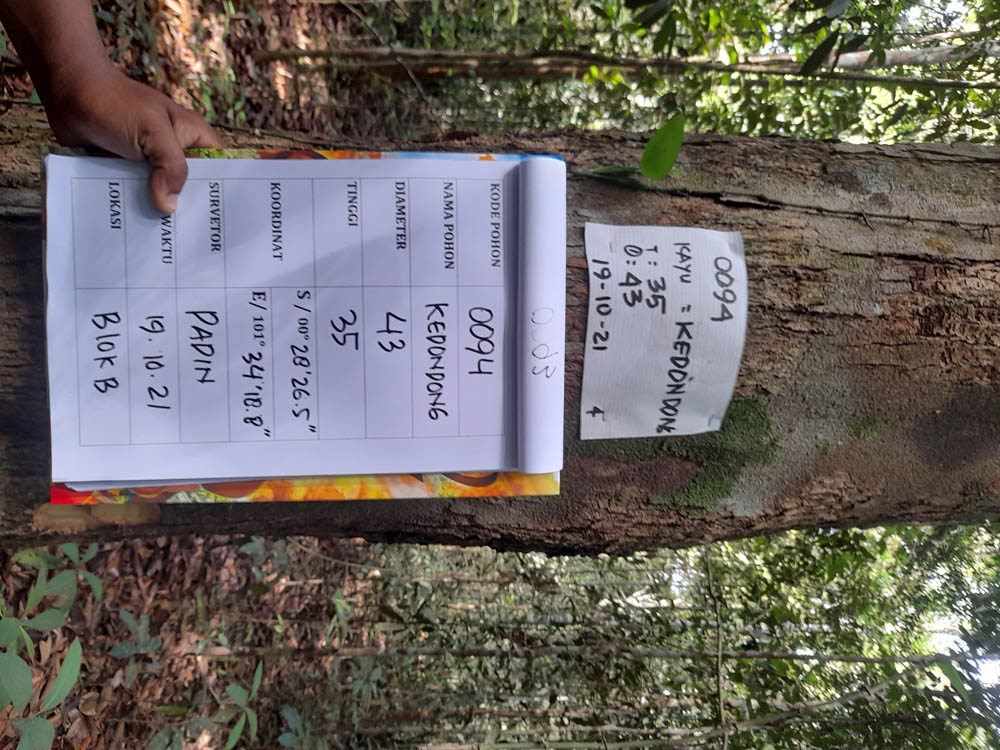 0094
KAYU = KEDONDONG
T: 35
Ø: 43
19-10-21 4
KODE POHON 0094
NAMA POHON KEDONDONG
DIAMETER 43
TINGGI 35
KOORDINAT S/ 00° 28'26.5"
E/ 101° 34'18.8"
SURVETOR PADIN
WAKTU 19.10.21
LOKASI BLOK B